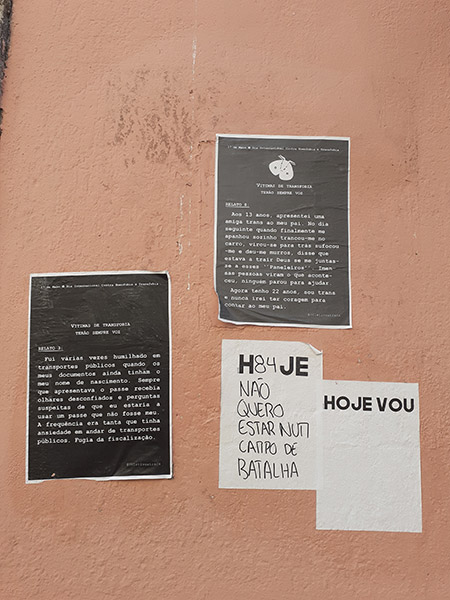 17 de Maio • Dia Internacional Contra Homofobia e Transfobia
VÍTIMAS DE TRANSFOBIA
TERÃO SEMPRE VOZ
RELATO 2.
Aos 13 anos, apresentei uma
amiga trans ao meu pai. No dia
seguinte quando finalmente me
apanhou sozinho trancou-me no
carro, virou-se para trás sufocou
-me e deu-me murros, disse que
estava a trair Deus se me juntas-
se a esses "Paneleiros". Imen-
sas pessoas viram o que aconte-
ceu, ninguém parou para ajudar.
Agora tenho 22 anos, sou trans
e nunca irei ter coragem para
contar ao meu pai.
17 de Maio • Dia Internacional Contra Homofobia e Transfobia
VÍTIMAS DE TRANSFOBIA
TERÃO SEMPRE VOZ
RELATO 3.
Fui várias vezes humilhado em
transportes públicos quando os
meus documentos ainda tinham o
meu nome de nascimento. Sempre
que apresentava o passe recebia
olhares desconfiados e perguntas
suspeitas de que eu estaria a
usar um passe que não fosse meu.
A frequência era tanta que tinha
ansiedade em andar de transportes
públicos. Fugia da fiscalização.
H84JE
NÃO
QUERO
ESTAR NUM
CAMPO DE
BATALHA
HOJE VOU